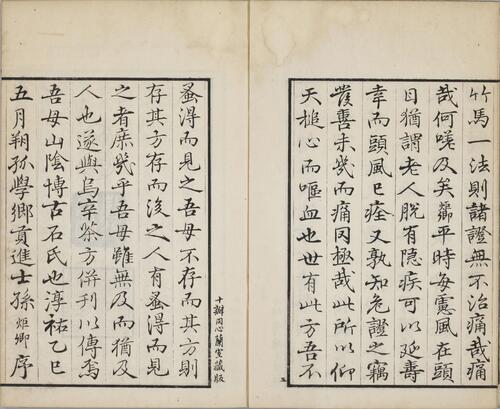 竹馬一法則諸證無不治痛哉痛
哉何嗟及矣炬卿平時每慮風在頭
目猶謂老人脫有隱疾可以延壽
幸而頭風已痊又孰知危證之竊
發喜未幾而痛罔極哉此所以仰
天搥心而嘔血也世有此方吾不
五
十瓣同心蘭室藏版
蚤得而見之吾母不存而其方則
存其方存而後之人有蚤得而見
之者庶幾乎吾母雖無及而猶及
人也遂與烏辛茶方併刊以傳焉
吾母山陰博古石氏也淳祐乙巳
五月朔孤學鄉貢進士孫炬卿序